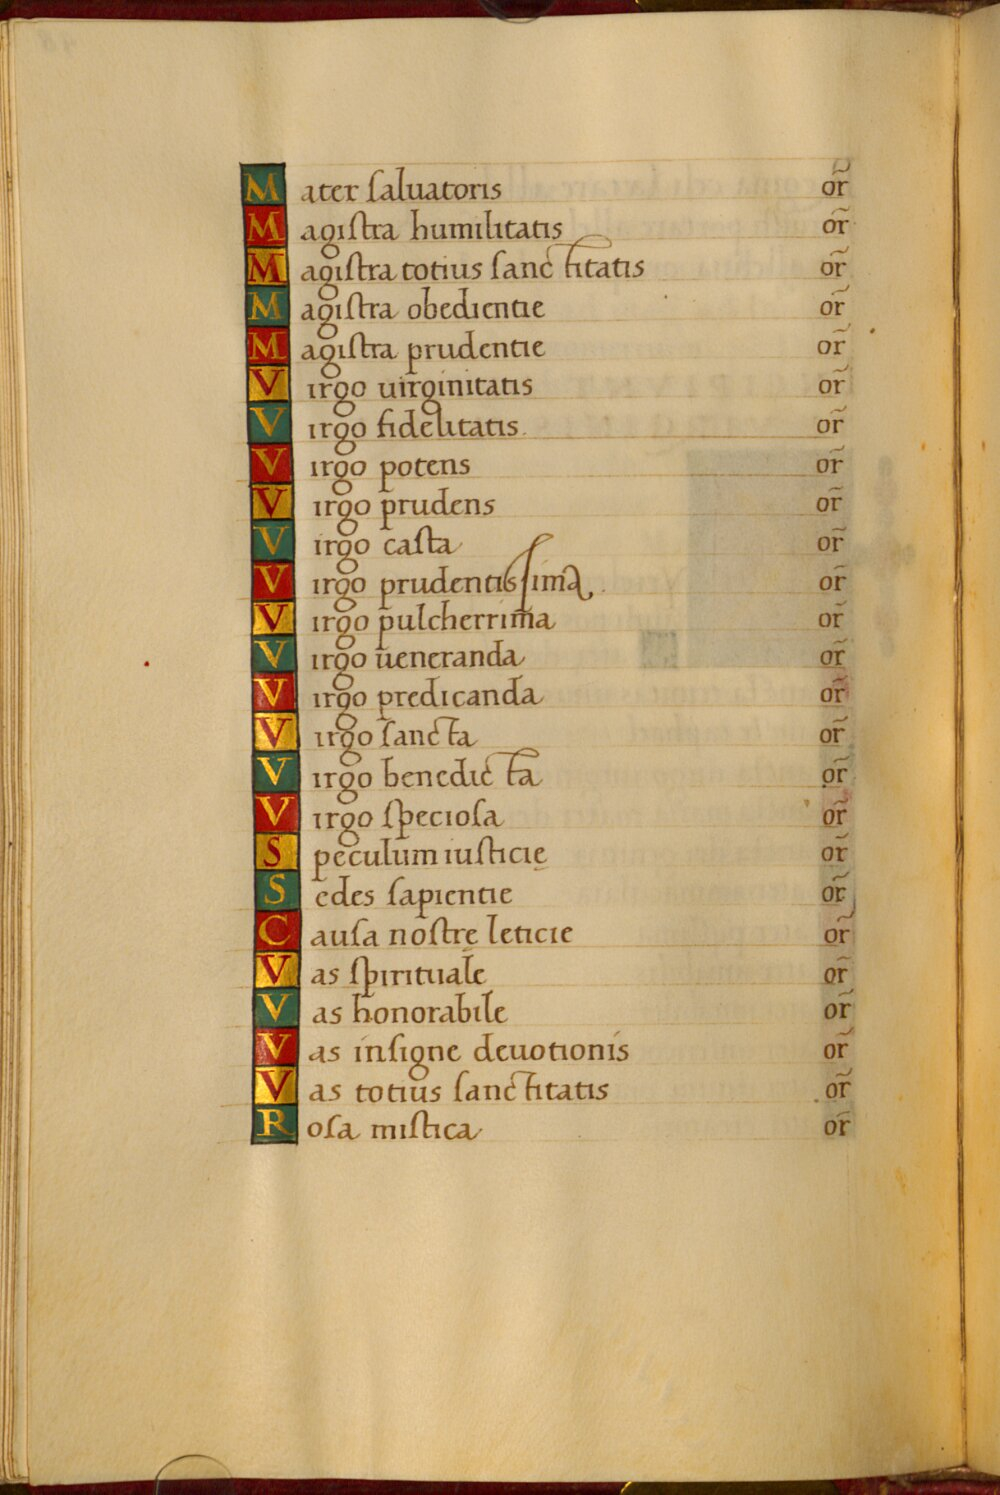 Mater saluatoris or̃
Magistra humilitatis or̃
Magistra totius sanctitatis or̃
Magistra obedientie or̃
Magistra prudentie or̃
Virgo uirginitatis or̃
Virgo fidelitatis. or̃
Virgo potens or̃
Virgo prudens or̃
Virgo casta or̃
Virgo prudentissima. or̃
Virgo pulcherrima or̃
Virgo ueneranda or̃
Virgo predicanda or̃
Virgo sancta or̃
Virgo benedicta or̃
Virgo speciosa or̃
Speculum iusticię or̃
Sedes sapientie or̃
Causa nostrę leticie or̃
Vas spirituale or̃
Vas honorabile or̃
Vas insigne deuotionis or̃
Vas totius sanctitatis or̃
Rosa mistica or̃